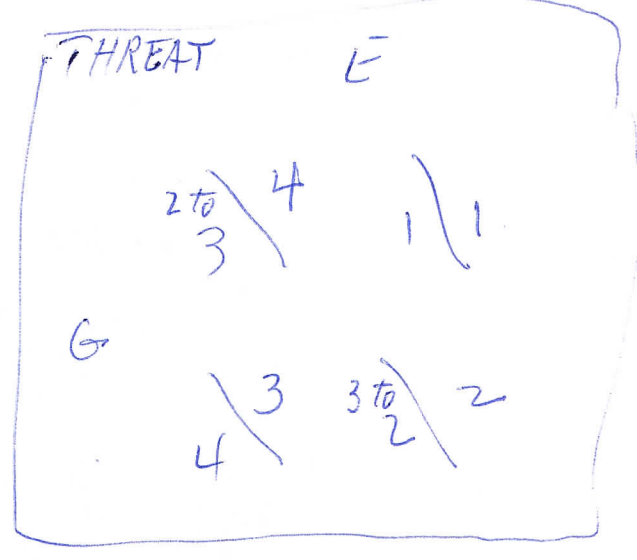 THREAT E
2 to 4
3 1 1
G
3 3 to 2
4 2